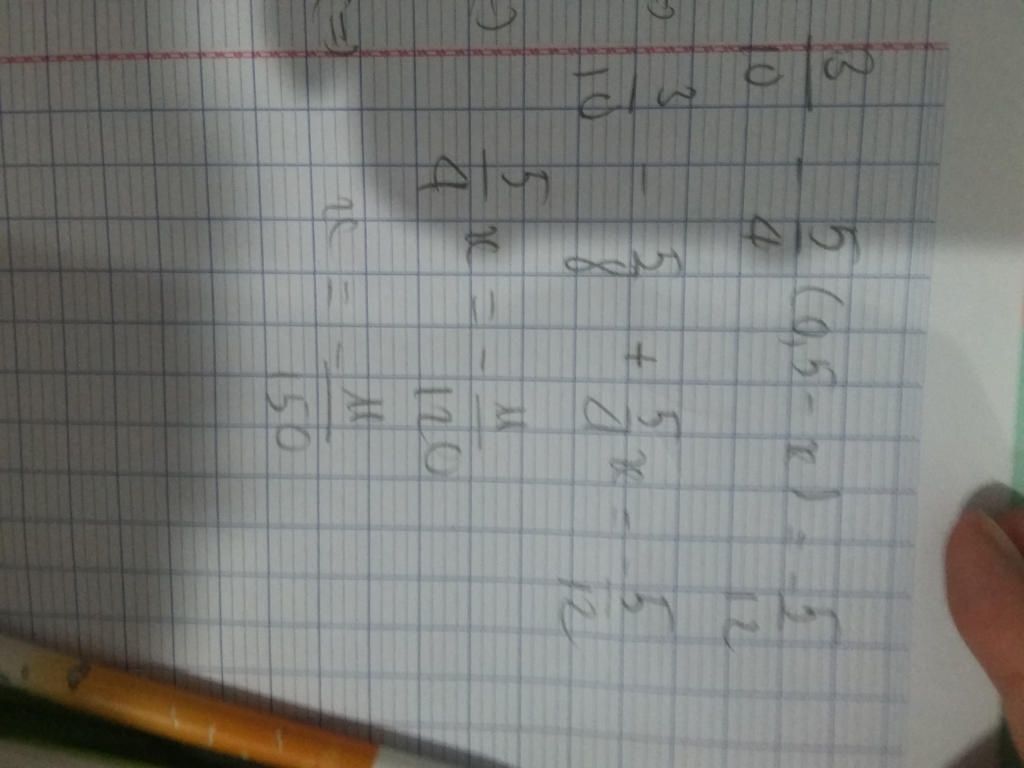 3/10 - 5/4 (0,5 - x) = -5/12
3/10 - 5/8 + 5/4 x = -5/12
=) 5/4 x = - 11/120
=) x = - 11/150